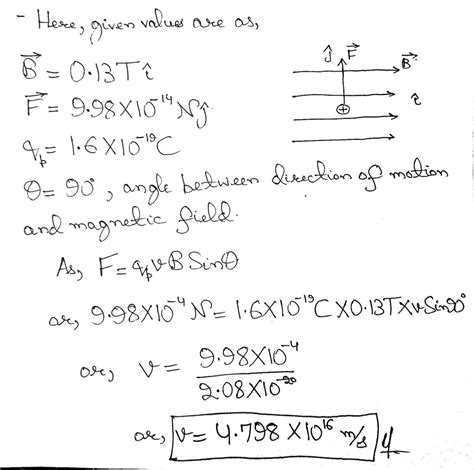 - Here, given values are as,
B⃗ = 0.13T î
F⃗ = 9.98X10⁻¹⁴Nĵ
q_p = 1.6X10⁻¹⁹C
θ = 90°, angle between direction of motion
and magnetic field.
As, F = q_p v B Sinθ
or, 9.98X10⁻⁴N = 1.6X10⁻¹⁹C X0.13TXvSin90°
or, v = 9.98X10⁻⁴
2.08X10⁻²⁰
or, v = 4.798 X10¹⁶ m/s
ĵ F⃗
B⃗
î
+